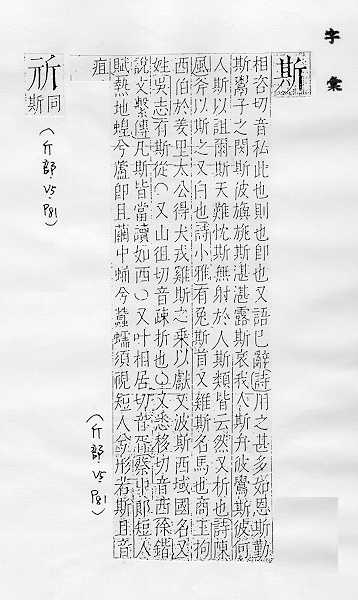 字彙
斯
相咨切音私此也則也即也又語已辭詩用之甚多如恩斯勤
斯鬻子之閔斯波旟旐斯湛湛露斯哀我人斯弁彼鸒斯彼何
人斯以詛爾斯天難忱斯無射於人斯類皆云然又析也詩陳
風斧以斯之又白也詩小雅有兔斯首又雞斯名馬也商王拘
西伯於羑里太公得犬戎雞斯之乘以獻又波斯西域國名又
姓吳志有斯從○又山徂切音疎折也○又悉移切音西徐鍇
說文繫傳凡斯皆當讀如西○又叶相居切音胥蔡中郎短人
賦熱地蝗兮蘆即且繭中蛹兮蠶蠕須視短人兮形若斯且音
疽
(斤部 V5. P81)
𣂔
同斯
(斤部 V5. P81)